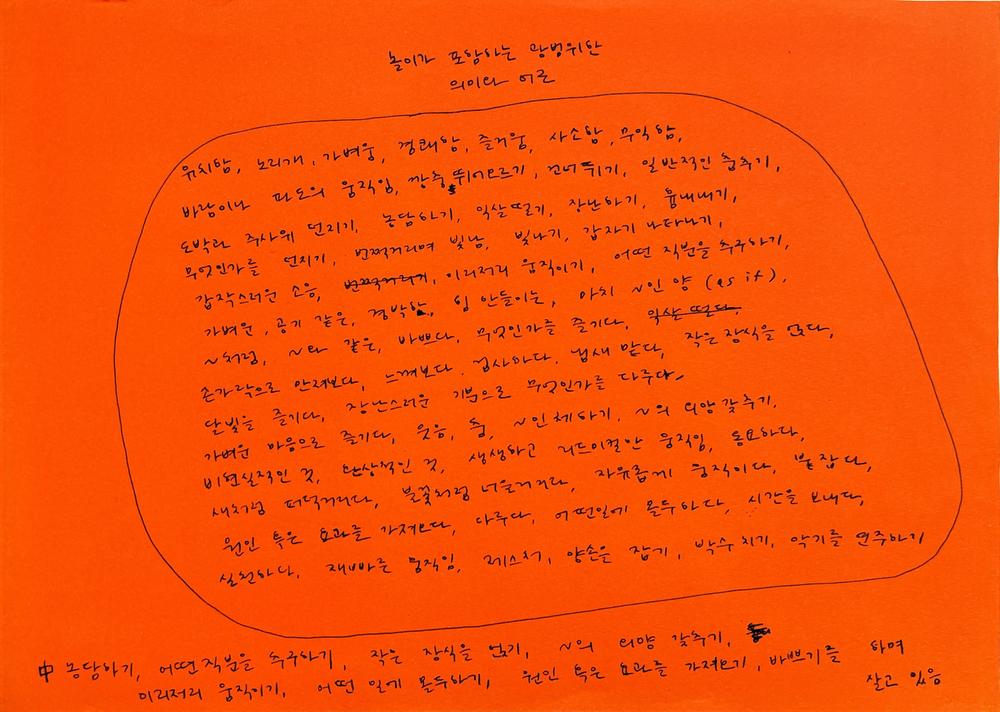 놀이가 포함하는 광범위한
의미와 어근
유치함, 노리개, 가벼움, 경쾌함, 즐거움, 사소함, 무익함,
바람이나 파도의 움직임, 깡충 뛰어오르기, 건너뛰기, 일반적인 춤추기,
도박과 주사위 던지기, 농담하기, 익살떨기, 장난하기, 흉내내기,
무엇인가를 던지기, 번쩍거리며 빛남, 빛나기, 갑자기 나타나기,
갑작스러운 소음, 번쩍거리기, 이리저리 움직이기, 어떤 직분을 추구하기,
가벼운, 공기 같은, 경박한, 힘 안들이는, 마치 ~인 양 (as if),
~처럼, ~와 같은, 바쁘다, 무엇인가를 즐기다, 익살 떨다,
손가락으로 만져보다, 느껴보다, 검사하다, 냄새 맡다, 작은 장식을 얹다,
달빛을 즐기다, 장난스러운 기분으로 무엇인가를 다루다,
가벼운 마음으로 즐기다, 웃음, 춤, ~인 체하기, ~의 외양 갖추기,
비현실적인 것, 환상적인 것, 생생하고 리드미컬한 움직임, 동요하다,
새처럼 퍼덕거리다, 불꽃처럼 너울거리다, 자유롭게 움직이다, 붙잡다,
원인 혹은 효과를 가져오다, 다루다, 어떤일에 몰두하다, 시간을 보내다,
실천하다, 재빠른 움직임, 제스처, 양손을 잡기, 박수 치기, 악기를 연주하기
中 농담하기, 어떤 직분을 추구하기, 작은 장식을 얹기, ~의 외양 갖추기,
이리저리 움직이기, 어떤 일에 몰두하기, 원인 혹은 효과를 가져오기, 바쁘기를 하며
살고 있음